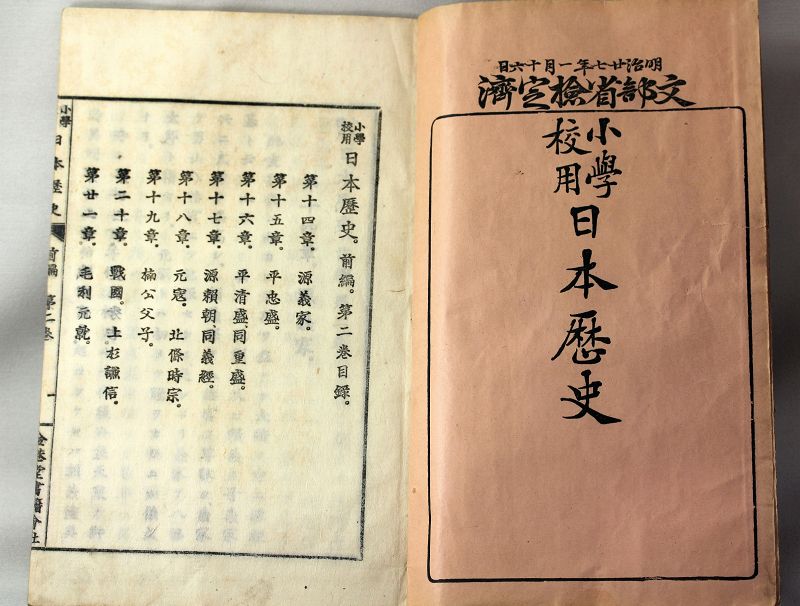 明治廿七年一月十六日
文部省檢定濟
小學校用
日本歷史
小學校用日本歷史。前編。第二巻目錄。
第十四章。源義家。
第十五章。平忠盛。
第十六章。平清盛、同重盛。
第十七章。源賴朝、同義經。
第十八章。元寇。北條時宗。
第十九章。楠公父子。
第二十章。戰國。上杉謙信。
第廿一章。毛利元就。
小學日本歷史
前編
第二巻
一
金港堂書籍會社